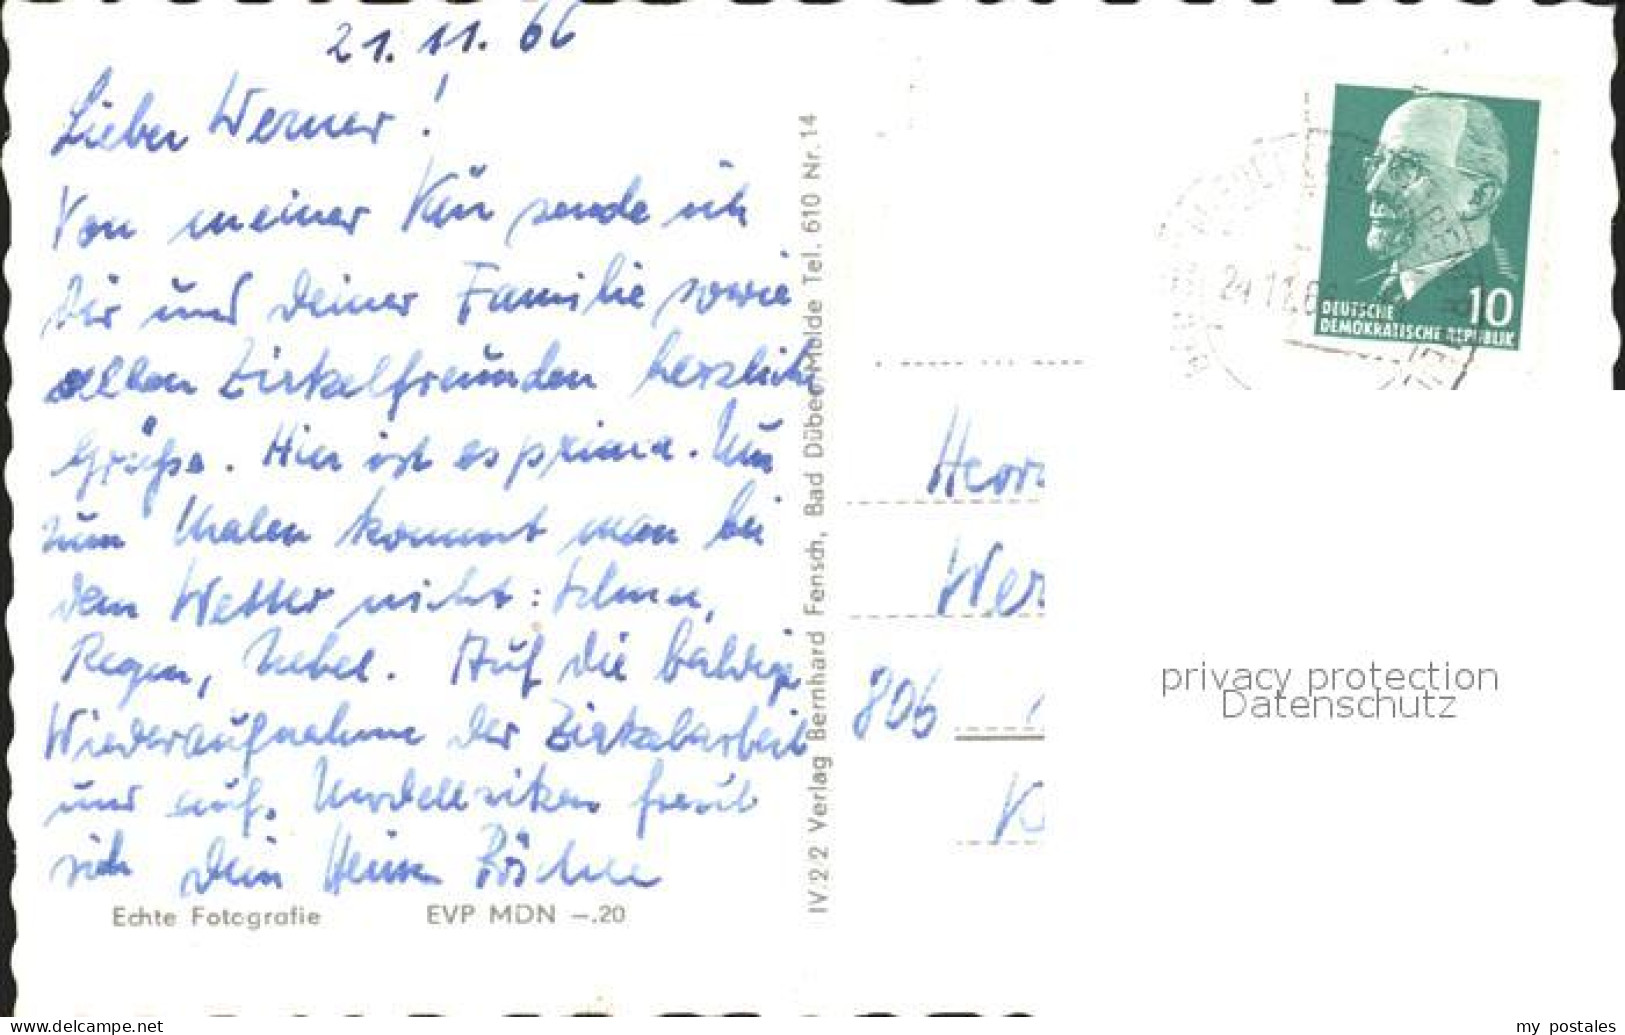 21. 11. 66
Lieber Werner!
Von meiner Kur sende ich
Dir und Deiner Familie sowie
allen Zirkelfreunden herzlich
Grüße. Hier ist es prima. Nur
zum Malen kommt man bei
dem Wetter nicht:
Regen, Nebel. Auf die baldige
Wiederaufnahme der Zirkelarbeit
und auf freut
sich Dein
Echte Fotografie EVP MDN –.20
IV/2/2 Verlag Bernhard Fensch, Bad Düben/Mulde Tel. 610 Nr. 14
24.11.6
10
DEUTSCHE
DEMOKRATISCHE REPUBLIK
Herrn
Wer
806
K
privacy protection
Datenschutz
www.delcampe.net
my_postales